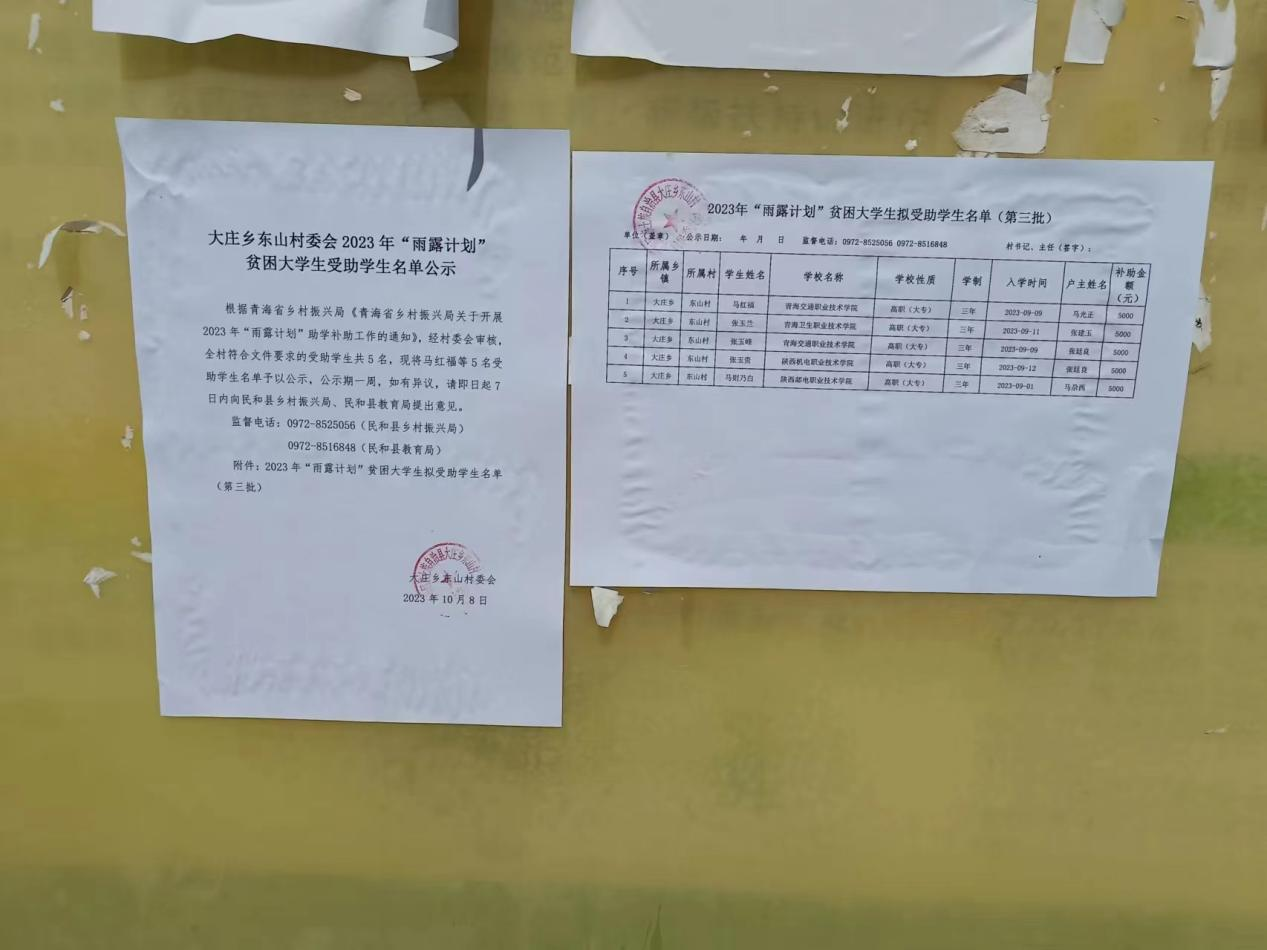 大庄乡东山村委会 2023 年“雨露计划”
贫困大学生受助学生名单公示
根据青海省乡村振兴局《青海省乡村振兴局关于开展
2023 年“雨露计划”助学补助工作的通知》，经村委会审核，
全村符合文件要求的受助学生共 5 名，现将马红福等 5 名受
助学生名单予以公示，公示期一周，如有异议，请即日起 7
日内向民和县乡村振兴局、民和县教育局提出意见。
监督电话：0972-8525056（民和县乡村振兴局）
0972-8516848（民和县教育局）
附件：2023 年“雨露计划”贫困大学生拟受助学生名单
（第三批）
大庄乡东山村委会
2023 年 10 月 8 日
2023年“雨露计划”贫困大学生拟受助学生名单（第三批）
单位（盖章） 公示日期： 年 月 日 监督电话：0972-8525056 0972-8516848 村书记、主任（签字）：
序号 所属乡镇 所属村 学生姓名 学校名称 学校性质 学制 入学时间 户主姓名 补助金额（元）
1 大庄乡 东山村 马红福 青海交通职业技术学院 高职（大专） 三年 2023-09-09 马光正 5000
2 大庄乡 东山村 张玉兰 青海卫生职业技术学院 高职（大专） 三年 2023-09-11 张建玉 5000
3 大庄乡 东山村 张玉峰 青海交通职业技术学院 高职（大专） 三年 2023-09-09 张廷良 5000
4 大庄乡 东山村 张玉贵 陕西机电职业技术学院 高职（大专） 三年 2023-09-12 张廷良 5000
5 大庄乡 东山村 马则乃白 陕西邮电职业技术学院 高职（大专） 三年 2023-09-01 马尕西 5000